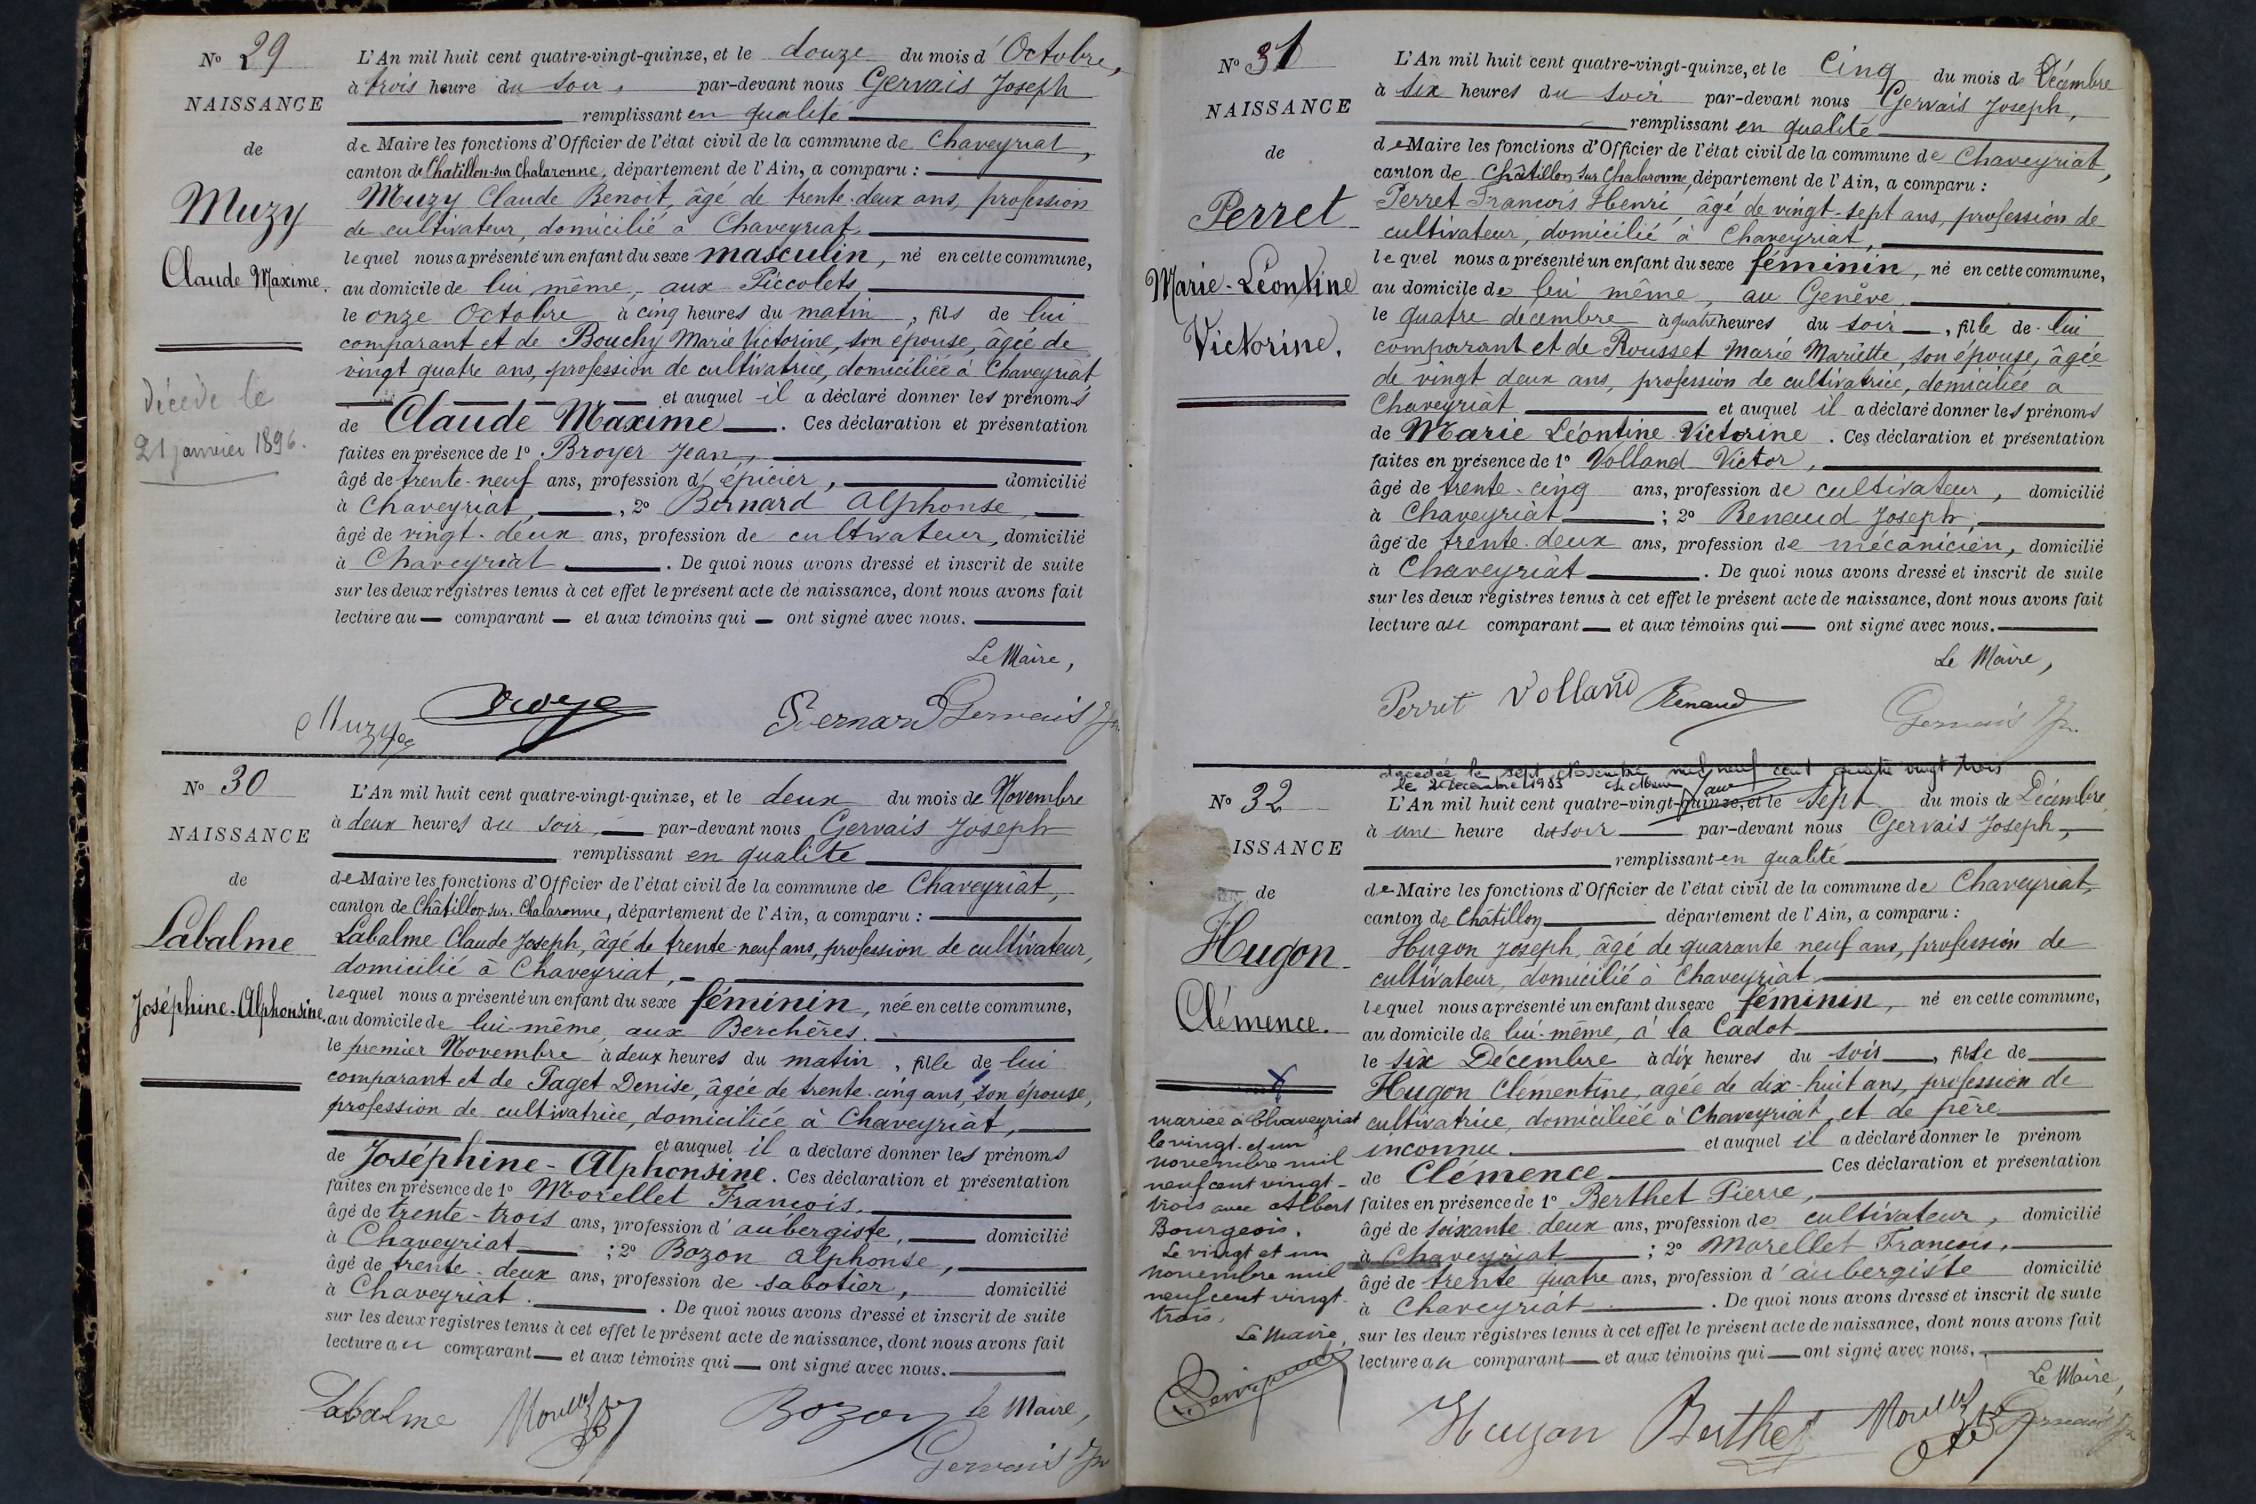 Nº 29
NAISSANCE
de
Muzy
Claude Maxime.
décédé le
21 janvier 1896.
L'An mil huit cent quatre-vingt-quinze, et le douze du mois d'Octobre,
à trois heure du soir, par-devant nous Gervais Joseph
remplissant en qualité
de Maire les fonctions d'Officier de l'état civil de la commune de Chaveyriat,
canton de Chatillon-sur Chalaronne, département de l'Ain, a comparu :
Muzy Claude Benoit, âgé de trente-deux ans, profession
de cultivateur, domicilié à Chaveyriat
lequel nous a présenté un enfant du sexe masculin, né en cette commune,
au domicile de lui même, aux Piccolets,
le onze Octobre à cinq heures du matin, fils de lui
comparant et de Bouchy Marie Victorine, son épouse, âgée de
vingt quatre ans, profession de cultivatrice, domiciliée à Chaveyriat,
et auquel il a déclaré donner les prénoms
de Claude Maxime. Ces déclaration et présentation
faites en présence de 1º Broyer Jean,
âgé de trente-neuf ans, profession d'épicier, domicilié
à Chaveyriat, 2º Bernard Alphonse,
âgé de vingt-deux ans, profession de cultivateur, domicilié
à Chaveyriat. De quoi nous avons dressé et inscrit de suite
sur les deux registres tenus à cet effet le présent acte de naissance, dont nous avons fait
lecture au comparant et aux témoins qui ont signé avec nous.
Le Maire,
Muzy Bernard Gervais Jph
Nº 30
NAISSANCE
de
Labalme
Joséphine-Alphonsine.
L'An mil huit cent quatre-vingt-quinze, et le deux du mois de Novembre
à deux heures du soir, par-devant nous Gervais Joseph
remplissant en qualité
de Maire les fonctions d'Officier de l'état civil de la commune de Chaveyriat,
canton de Châtillon-sur-Chalaronne, département de l'Ain, a comparu :
Labalme Claude Joseph, âgé de trente-neuf ans, profession de cultivateur,
domicilié à Chaveyriat,
lequel nous a présenté un enfant du sexe féminin, née en cette commune,
au domicile de lui-même, aux Berchères.
le premier Novembre à deux heures du matin, fille de lui
comparant et de Paget Denise, âgée de trente-cinq ans, son épouse,
profession de cultivatrice, domiciliée à Chaveyriat,
et auquel il a déclaré donner les prénoms
de Joséphine-Alphonsine. Ces déclaration et présentation
faites en présence de 1º Morellet François,
âgé de trente-trois ans, profession d'aubergiste, domicilié
à Chaveyriat ; 2º Bozon Alphonse,
âgé de trente-deux ans, profession de sabotier, domicilié
à Chaveyriat. De quoi nous avons dressé et inscrit de suite
sur les deux registres tenus à cet effet le présent acte de naissance, dont nous avons fait
lecture au comparant et aux témoins qui ont signé avec nous.
Labalme Morellet Bozon le Maire,
Gervais Jph
Nº 31
NAISSANCE
de
Perret
Marie-Léontine
Victorine.
L'An mil huit cent quatre-vingt-quinze, et le Cinq du mois de Décembre
à six heures du soir par-devant nous Gervais Joseph,
remplissant en qualité
de Maire les fonctions d'Officier de l'état civil de la commune de Chaveyriat,
canton de Châtillon sur Chalaronne, département de l'Ain, a comparu :
Perret François Henri, âgé de vingt-sept ans, profession de
cultivateur, domicilié à Chaveyriat,
lequel nous a présenté un enfant du sexe féminin, né en cette commune,
au domicile de lui même, au Genève
le quatre décembre à quatre heures du soir, fille de lui
comparant et de Rousset Marie Mariette, son épouse, âgée
de vingt deux ans, profession de cultivatrice, domiciliée à
Chaveyriat et auquel il a déclaré donner les prénoms
de Marie Léontine Victorine. Ces déclaration et présentation
faites en présence de 1º Volland Victor,
âgé de trente-cinq ans, profession de cultivateur, domicilié
à Chaveyriat ; 2º Renaud Joseph,
âgé de trente-deux ans, profession de mécanicien, domicilié
à Chaveyriat. De quoi nous avons dressé et inscrit de suite
sur les deux registres tenus à cet effet le présent acte de naissance, dont nous avons fait
lecture au comparant et aux témoins qui ont signé avec nous.
Le Maire,
Perret Volland Renaud Gervais Jph
décédée le sept décembre mil neuf cent quatre vingt trois
le 21 décembre 1983
Nº 32
NAISSANCE
de
Hugon
Clémence.
mariée à Chaveyriat
le vingt-et un
novembre mil
neuf cent vingt-
trois avec Albert
Bourgeois.
Le vingt et un
novembre mil
neuf cent vingt
trois,
Le Maire,
L'An mil huit cent quatre-vingt-quinze, et le sept du mois de Décembre
à une heure du soir par-devant nous Gervais Joseph,
remplissant en qualité
de Maire les fonctions d'Officier de l'état civil de la commune de Chaveyriat,
canton de Châtillon département de l'Ain, a comparu :
Hugon Joseph, âgé de quarante neuf ans, profession de
cultivateur, domicilié à Chaveyriat,
lequel nous a présenté un enfant du sexe féminin, né en cette commune,
au domicile de lui-même, à la Cadot
le six Décembre à dix heures du soir, fille de
Hugon Clementine, agée de dix-huit ans, profession de
cultivatrice, domiciliée à Chaveyriat, et de père
inconnu et auquel il a déclaré donner le prénom
de Clémence Ces déclaration et présentation
faites en présence de 1º Berthet Pierre,
âgé de soixante-deux ans, profession de cultivateur, domicilié
à Chaveyriat ; 2º Morellet François,
âgé de trente quatre ans, profession d'aubergiste domicilié
à Chaveyriat. De quoi nous avons dressé et inscrit de suite
sur les deux registres tenus à cet effet le présent acte de naissance, dont nous avons fait
lecture au comparant et aux témoins qui ont signé avec nous.
Le Maire,
Hugon Berthet Morellet Gervais Jph